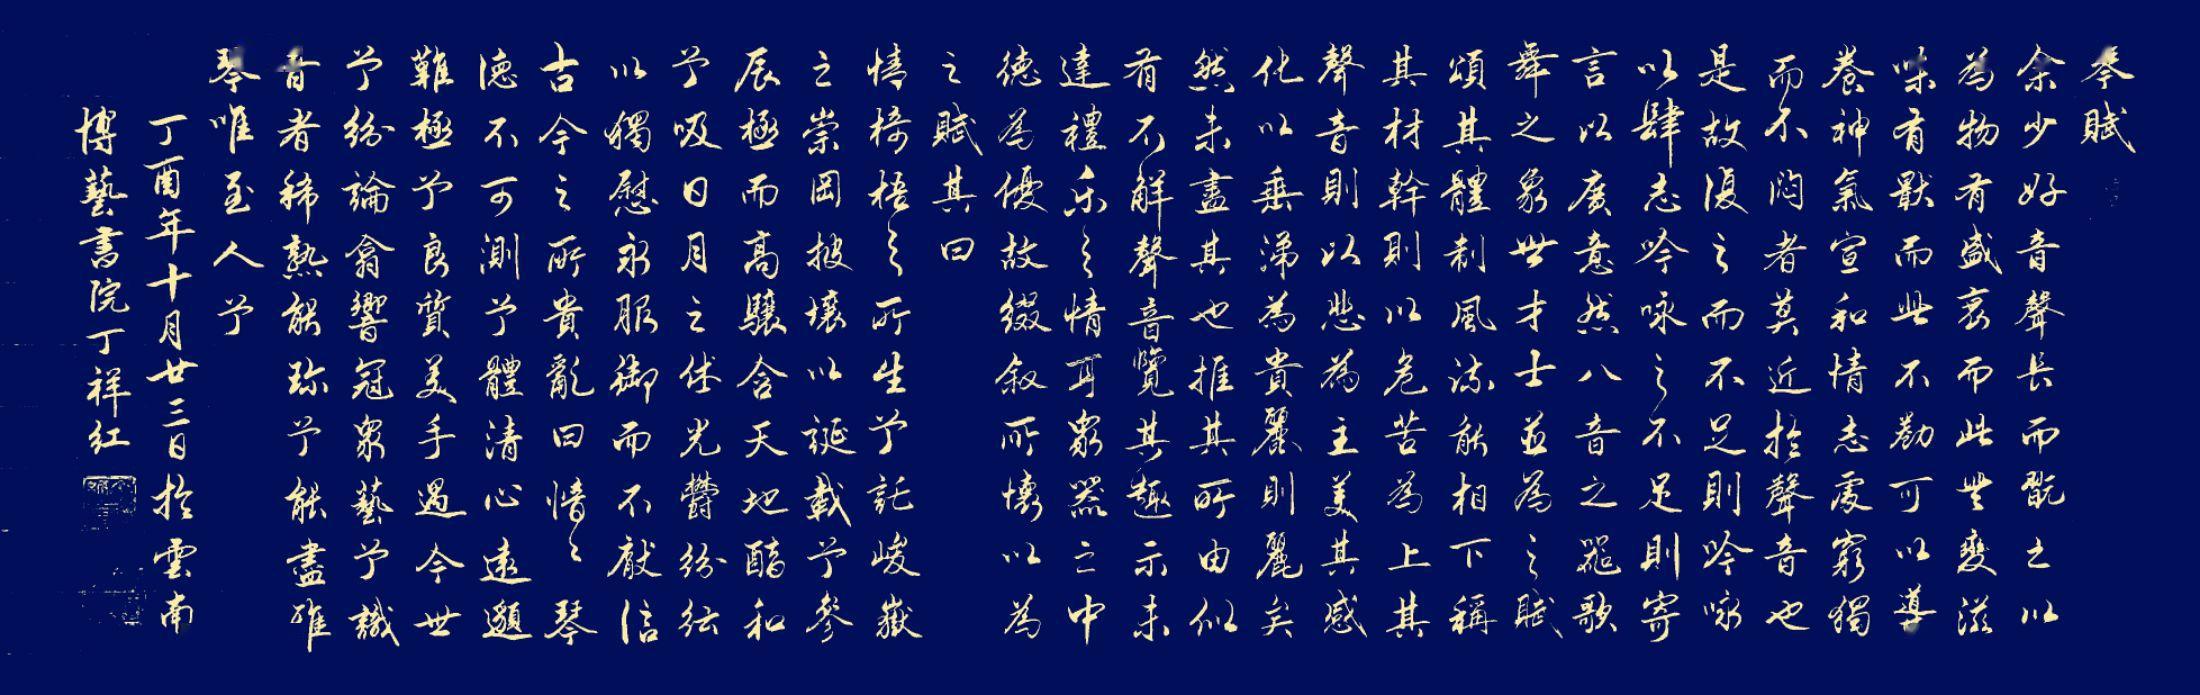 琴賦
余少好音聲長而翫之以
為物有盛衰而此無變滋
味有猒而此不勌可以導
養神氣宣和情志處窮獨
而不悶者莫近於聲音也
是故復之而不足則吟咏
以肆志吟咏之不足則寄
言以廣意然八音之器歌
舞之象世才士並為之賦
頌其體制風流能相下稱
其材幹則以危苦為上其
聲音則以悲為主美其感
化以垂涕為貴麗則麗矣
然未盡其也推其所由似
有不解聲音覽其趣示未
達禮乐之情耳眾器之中
德為優故綴叙所懷以為
之賦其曰
情椅梧之所生兮託峻嶽
之崇岡披壤以誕載兮參
辰極而高驤含天地醕和
兮吸日月之休光鬱紛紜
以獨慰永服御而不猒信
古今之所貴亂曰愔々琴
德不可測兮體清心遠邈
難極兮良質美手遇今世
兮紛論翕響冠眾藝兮識
音者稀熟能珍兮能盡雅
琴唯至人兮
丁酉年十月廿三日於雲南
博藝書院丁祥红